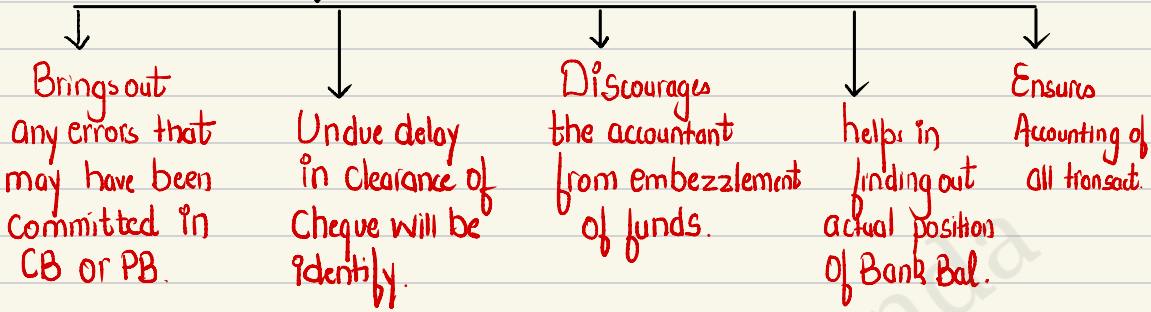 Brings out
any errors that
may have been
committed in
CB or PB.
Undue delay
in clearance of
Cheque will be
identify.
Discourages
the accountant
from embezzlement
of funds.
helps in
finding out
actual position
of Bank Bal.
Ensures
Accounting of
all transact.
nda